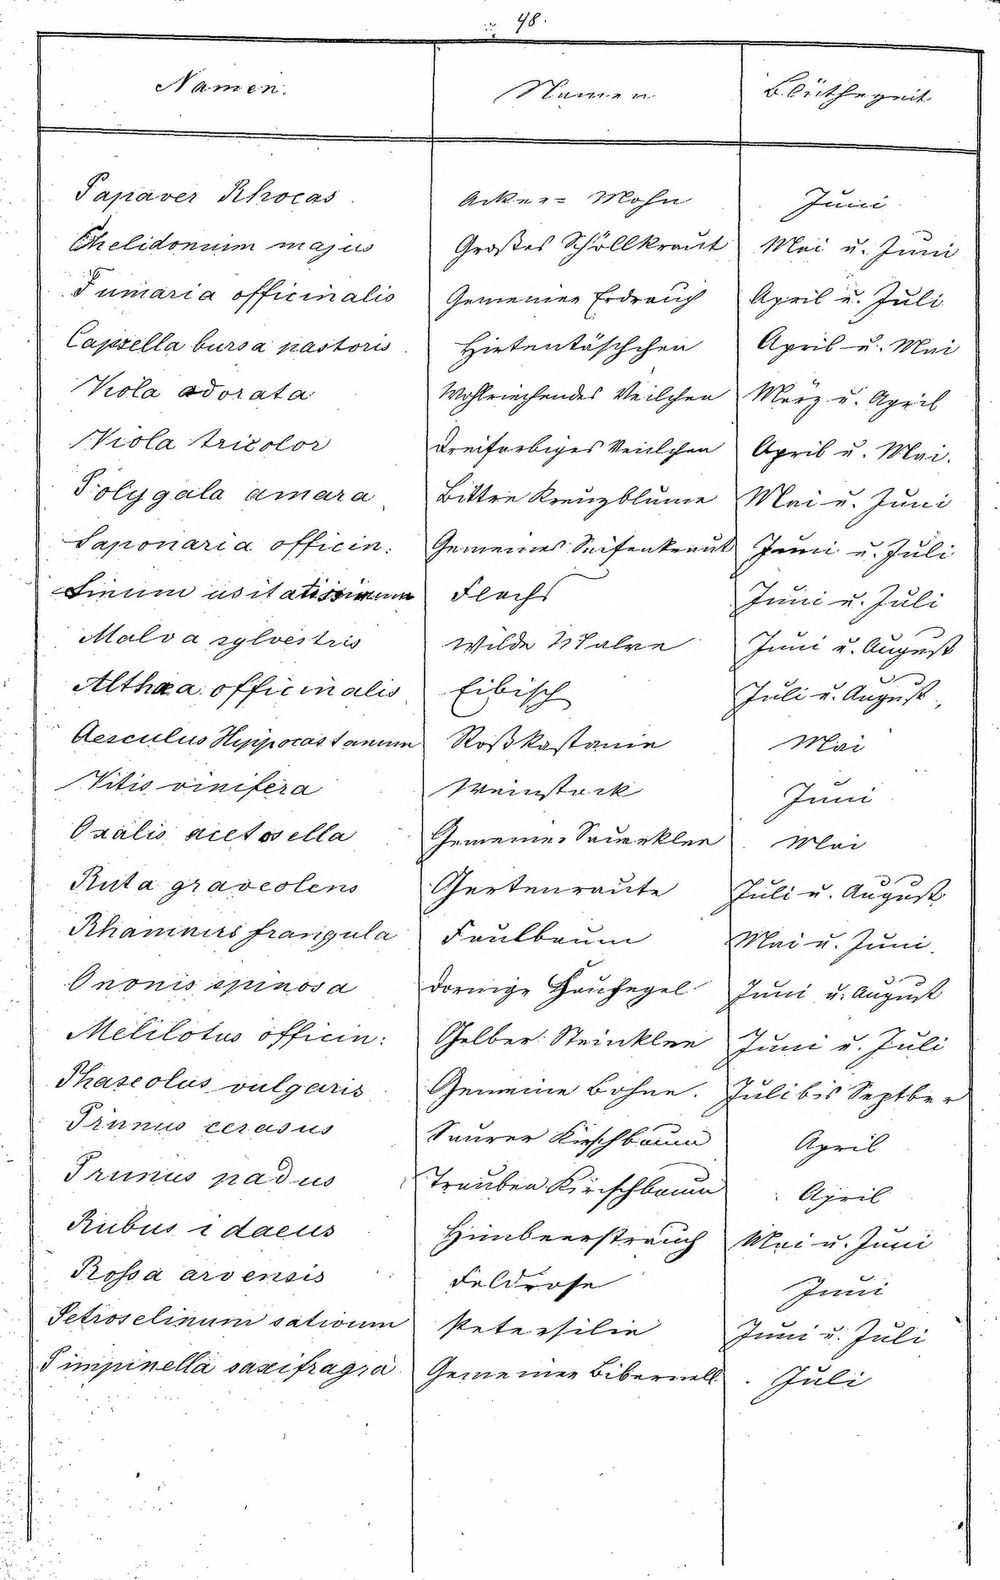 48.
Namen. Namen Blüthezeit
Papaver Rhoeas Acker= Mohn Juni
Chelidonium majus Großes Schöllkraut Mai u. Juni
Fumaria officinalis Gemeiner Erdrauch April u. Juli
Capsella bursa pastoris Hirtentäschchen April u. Mai
Viola odorata Wohlriechendes Veilchen März u. April
Viola tricolor Dreifarbiges Veilchen April u. Mai.
Polygala amara Bittre Kreuzblume Mai u. Juni
Saponaria officin: Gemeines Seifenkraut Juni u. Juli
Linum usitatissimum Flachs Juni u. Juli
Malva sylvestris Wilde Malve Juni u. August
Althaea officinalis Eibisch Juli u. August
Aesculus Hippocastanum Roßkastanie Mai
Vitis vinifera Weinstock Juni
Oxalis acetosella Gemeiner Sauerklee Mai
Ruta graveolens Gartenraute Juli u. August
Rhamnus frangula Faulbaum Mai u. Juni.
Ononis spinosa Dornige Hauhegel Juni u. August
Melilotus officin: Gelber Steinklee Juni u. Juli
Phaseolus vulgaris Gemeine Bohne. Juli bis Septber
Prunus cerasus Saurer Kirschbaum April
Prunus padus Trauben Kirschbaum April
Rubus idaeus Himbeerstrauch Mai u. Juni
Rossa arvensis Feldrose Juni
Petroselinum sativum Petersilie Juni u. Juli
Pimpinella saxifragra Gemeiner Bibernell Juli